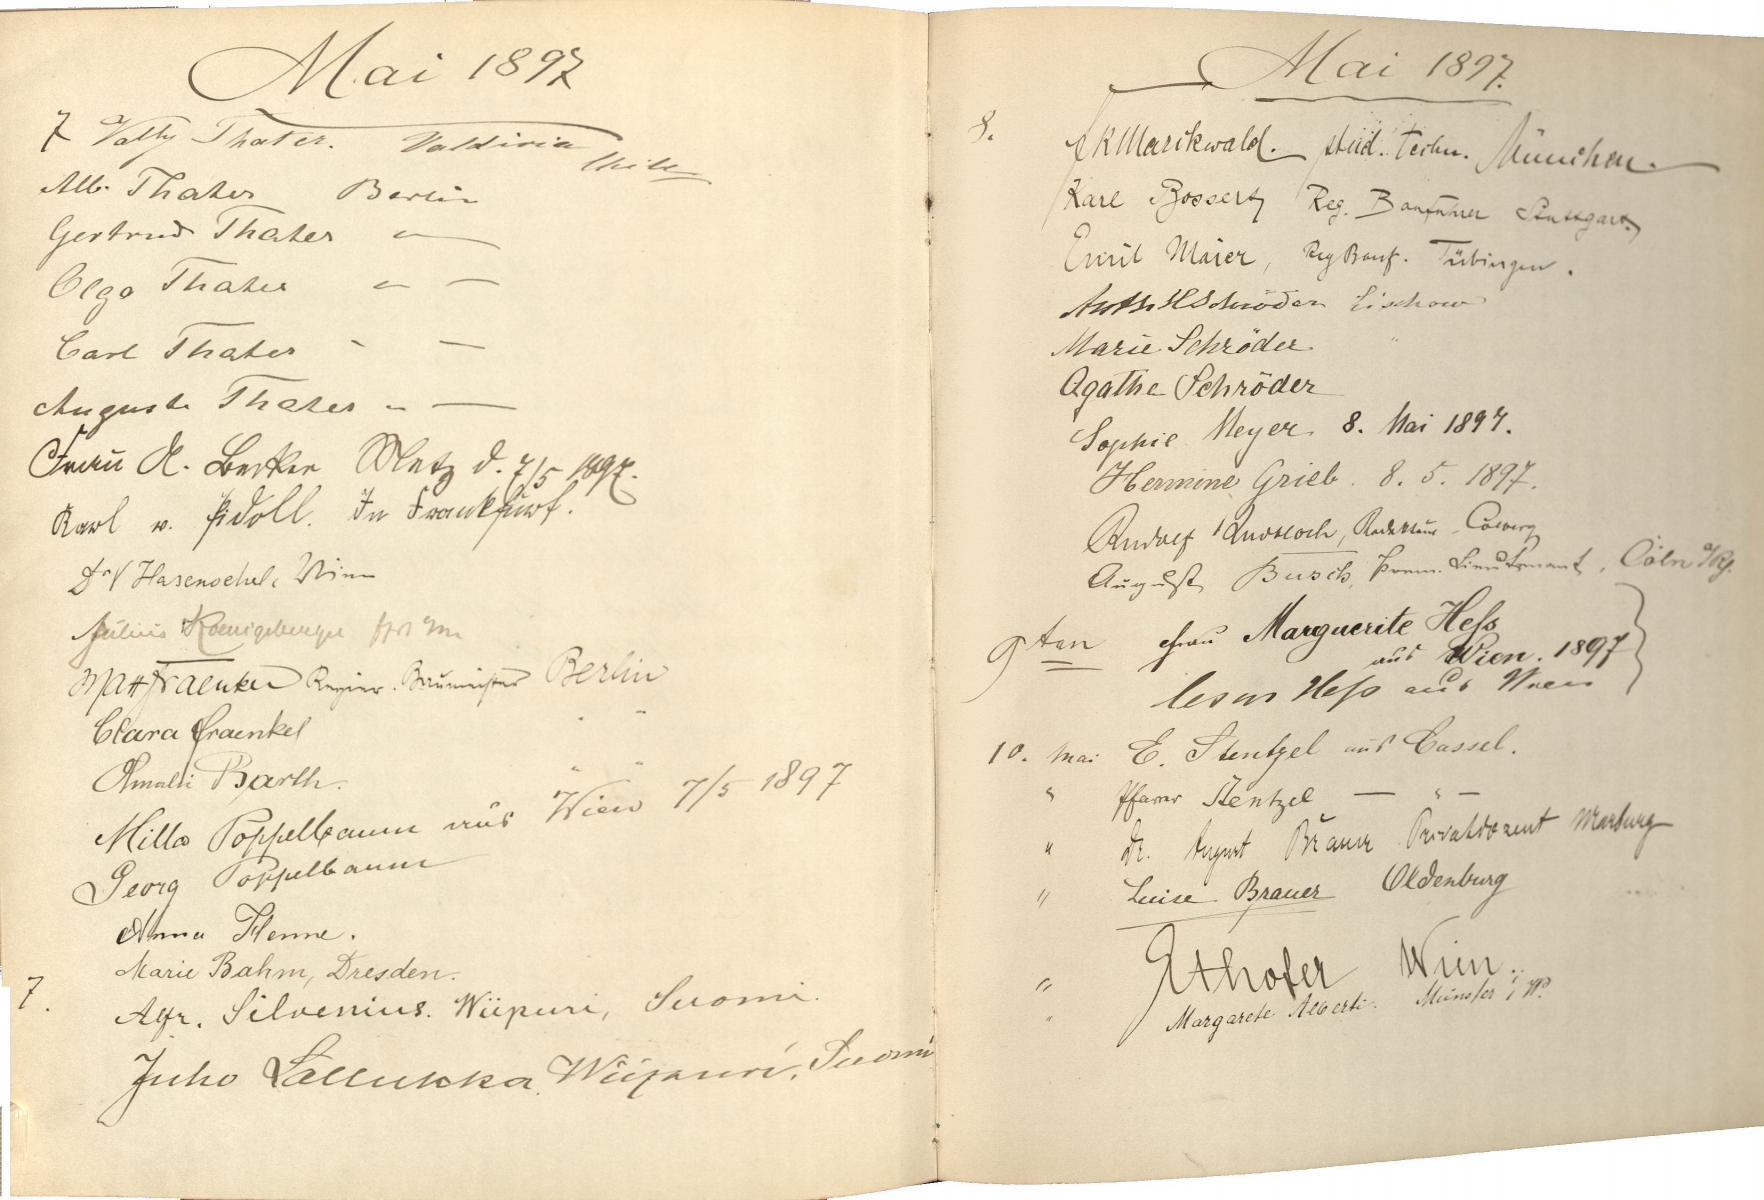 Mai 1897
7 Vally Thater. Valdivia
Chile
Alb. Thater Berlin
Gertrud Thater " —
Olga Thater " —
Carl Thater " —
Auguste Thater " —
Frau A. Becker Metz d. 7/5 1897.
Karl v. Pidoll. In Frankfurt.
Dr V Hasenoehrl, Wien
Julius Koenigsberger
Max Fraenkel Regier. Baumeister Berlin
Clara Fraenkel " "
Amalie Barth. " "
Milla Poppelbaum aus Wien 7/5 1897
Georg Poppelbaum
Anna Henne.
Marie Bahm, Dresden.
7. Agr. Silvenius. Wiipuri, Suomi.
Juho Lallukka. Wiipuri, Suomi
Mai 1897.
8. Marckwald. stud. techn. München.
Karl Bossert, Reg. Bauführer Stuttgart.
Emil Maier, Reg Bauf. Tübingen.
Schröder
Marie Schröder "
Agathe Schröder
Sophie Meyer 8. Mai 1897.
Hermine Grieb. 8. 5. 1897.
Rudolf Redakteur Coburg
August Busch, Prem. Lieutenant, Cöln a/Rh.
9ten Frau Marguerite Heß
aus Wien. 1897
Heß aus Wien
10. Mai E. Stentzel aus Cassel.
" Pfarrer Stentzel — " —
" Dr. August Brauer Privatdozent Marburg
" Luise Brauer Oldenburg
" Wien.
" Margarete Alberti. Münster i/W.